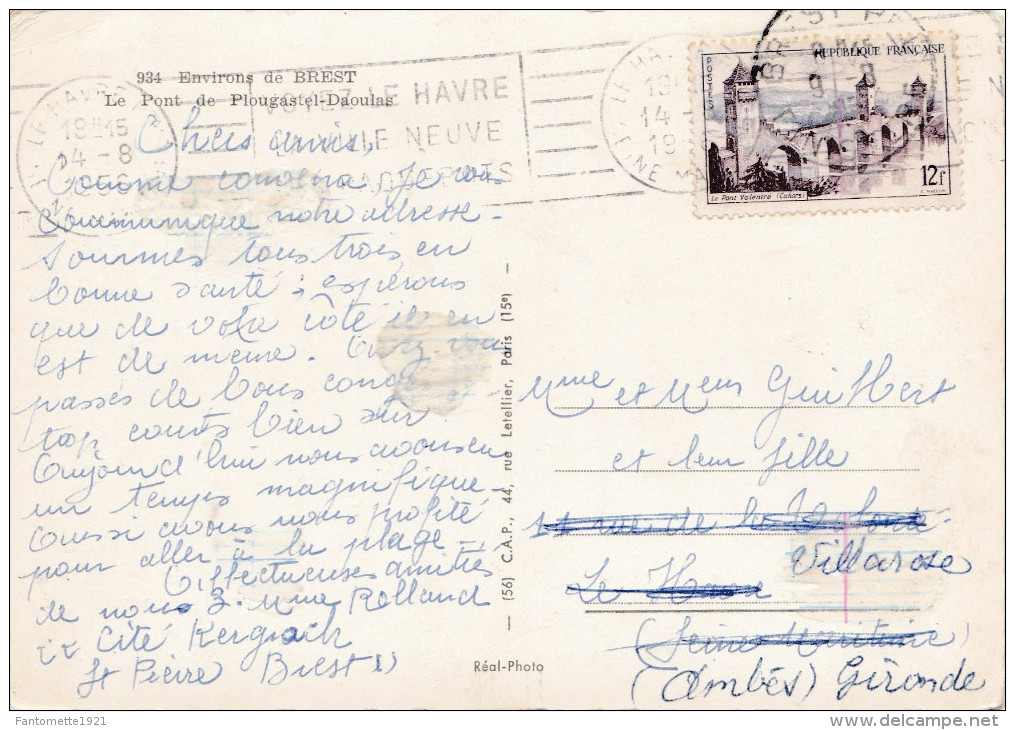 934 Environs de BREST
Le Pont de Plougastel-Daoulas
LE HAVRE
14 - 8
VOYEZ LE HAVRE
VILLE NEUVE
REPUBLIQUE FRANÇAISE
POSTES
12F
Le Pont Valentré (Cahors)
Chers amis,
Comme convenu je vous
communique notre adresse -
Sommes tous trois en
bonne santé ; espérons
que de votre côté il en
est de même. Avez-vous
passés de bons congés
trop courts bien sûr
Aujourd'hui nous avons eu
un temps magnifique -
aussi avons nous profité
pour aller à la plage -
Affectueuses amitiés
de nous 3. Mme Rolland
Cité Kergoat
St Pierre Brest
(56) C.A.P., 44, rue Letellier, Paris (15e)
Réal-Photo
Mme et Meur Guilbert
et leur fille
rue de
Le Havre
Villarose
(Seine Maritime)
(Ambés) Gironde
Fantomette1921
www.delcampe.net